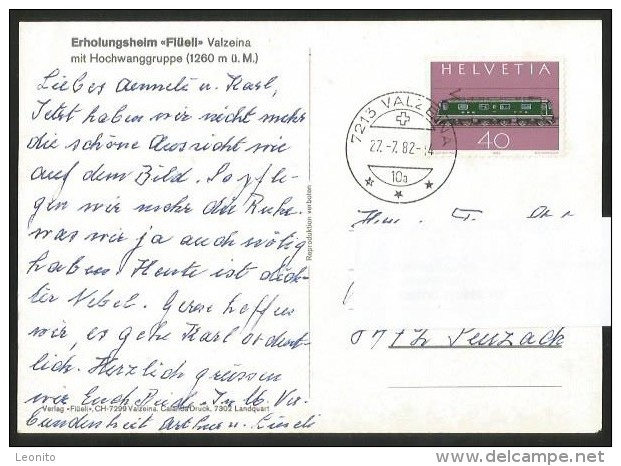 Erholungsheim «Flüeli» Valzeina
mit Hochwanggruppe (1260 m ü. M.)
Liebes Annneli u. Karl,
Jetzt haben wir nicht mehr
die schöne Aussicht wie
auf dem Bild. So pfle-
gen wir mehr die Ruhe.
was wir ja auch nötig
haben. Heute ist dich-
ter Nebel. Gerne hoffen
wir, es gehe Karl ordent-
lich. Herzlich grüssen
wir Euch Beide. In lb. Ver-
bundenheit Arthur u. Liseli
Verlag «Flüeli», CH-7299 Valzeina, Druck, 7302 Landquart
Reproduktion verboten
HELVETIA
40
7213 VALZEINA
27.-7.82-14
10a
Penzack
Leonito
www.delcampe.net